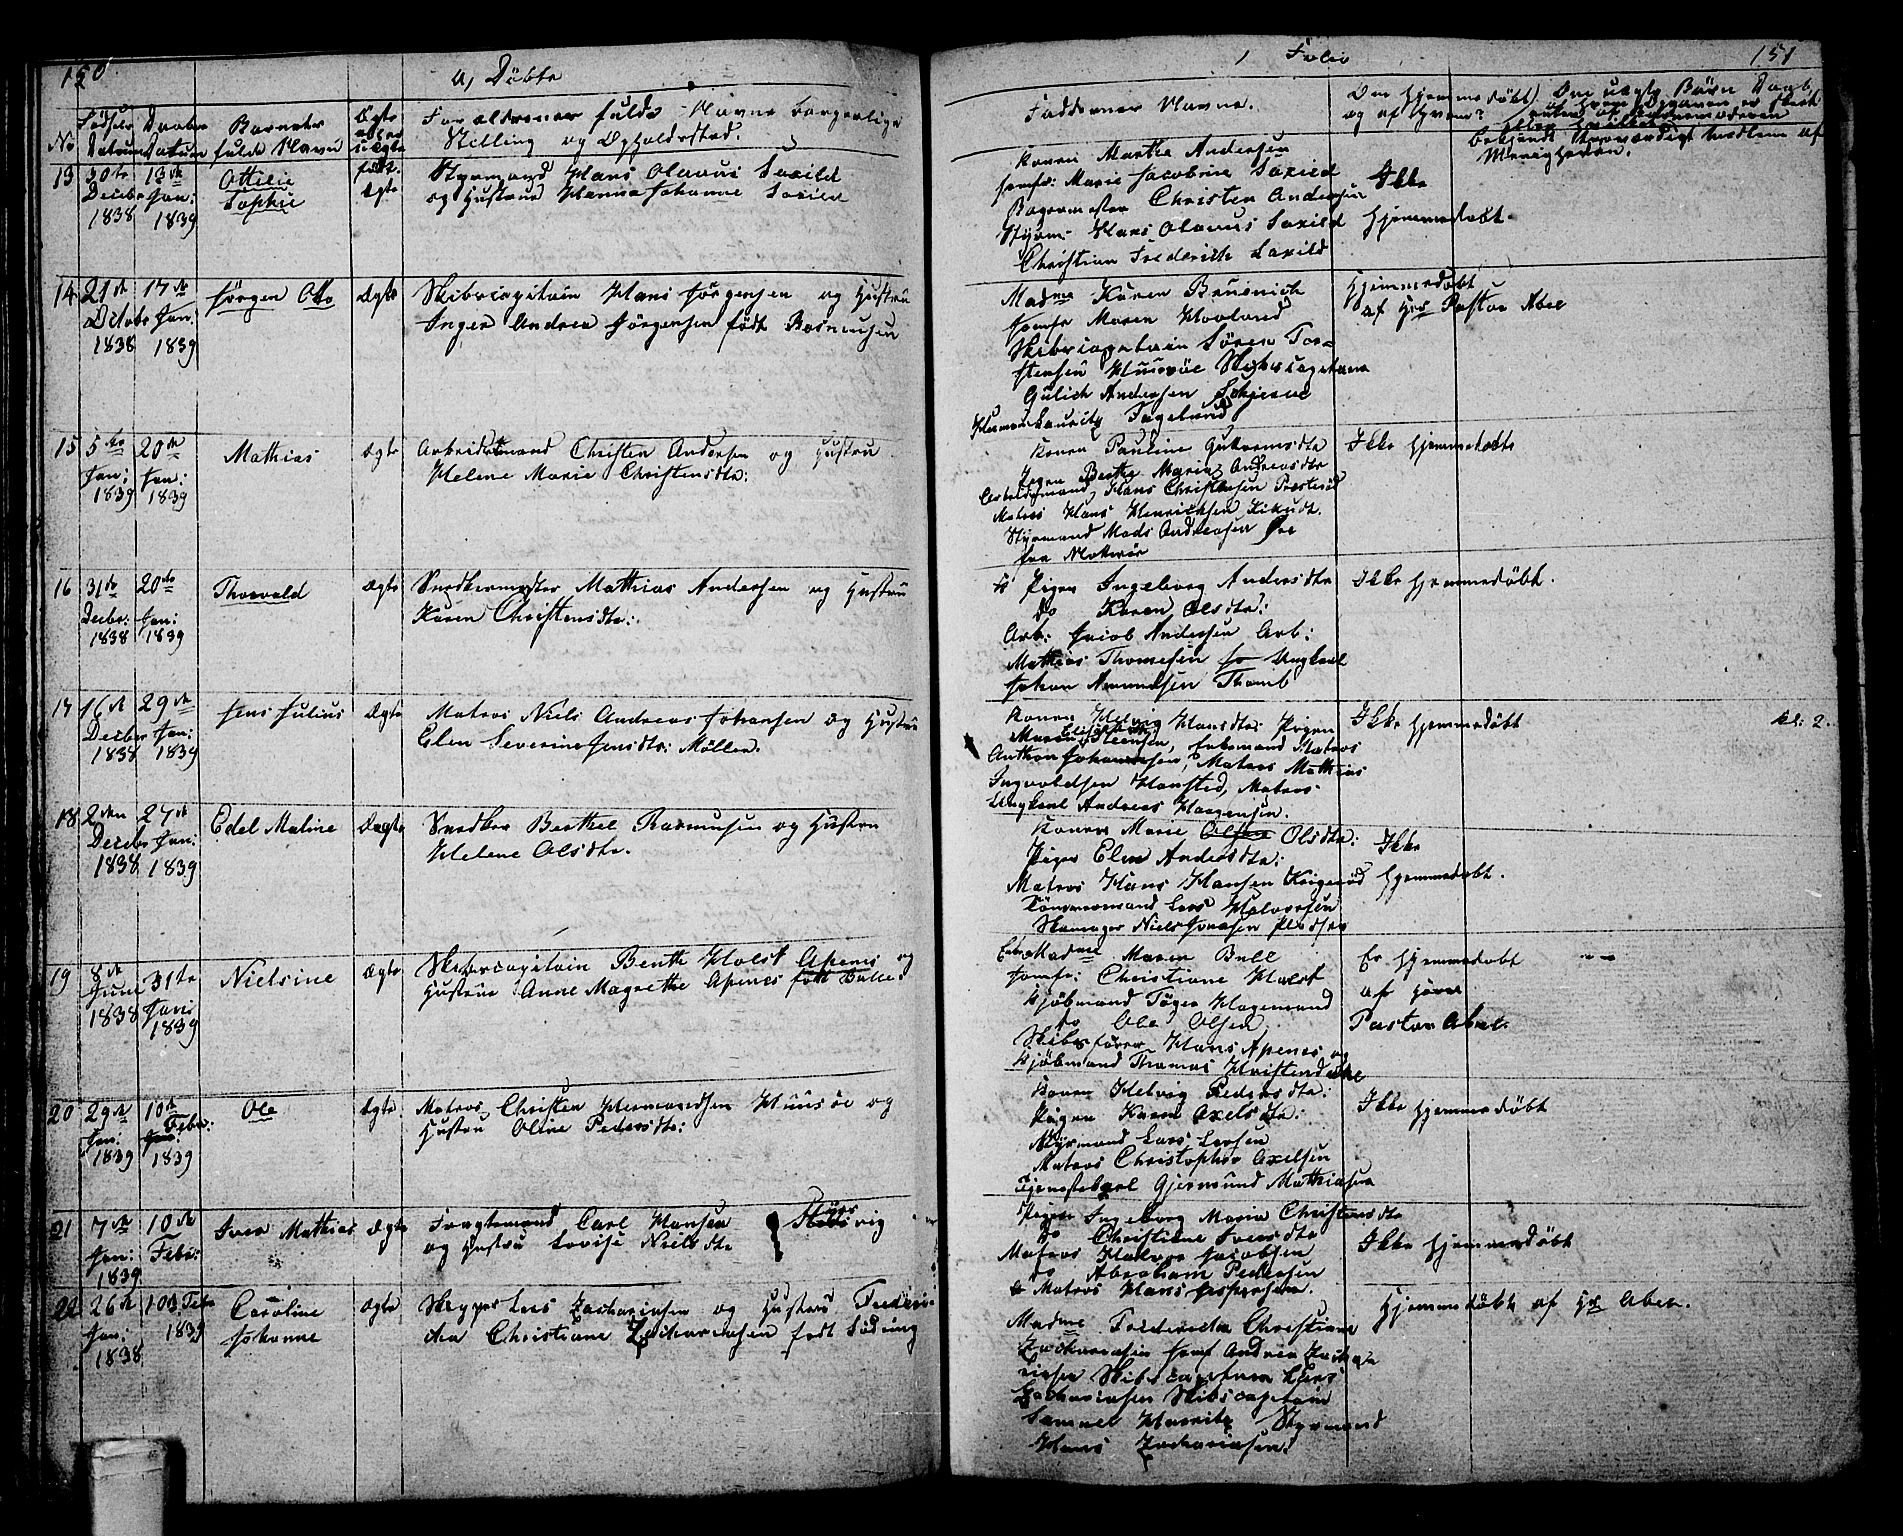 150
a, Döbte
No
Fødsels Datum
Daabs Datum
Barnets fulde Navn
Ægte eller uægte født.
Forældrenes fulde Navne borgerlige
Stilling og Opholdssted.
13
30te Decbr 1838
13de Jan: 1839
Ottilie Sophie
Ægte
Styrmand Hans Olavus Saxild
og Hustrue Hanna Johanne Saxild
14
21de Octobr 1838
17de Jan: 1839
Jörgen Otto
Ægte
Skibscapitain Hans Jörgensen og Hustru
Inger Andrea Jörgensen født Rasmussen
15
5te Jan: 1839
20de Jan: 1839
Mathias
Ægte
Arbeidsmand Christen Andersen og Hustru
Helene Marie Christensdtr:
16
31te Decbr: 1838
20de Jan: 1839
Thorvald
Ægte
Snedkermester Mathias Andersen og Hustru
Karen Christensdtr:
17
16de Decbr 1838
29de Jan: 1839
Jens Julius
Ægte
Matros Niels Andreas Johansen og Hustru
Elen Severine Jensdtr: Møller.
18
2den Decbr 1838
27de Jan: 1839
Edel Maline
Ægte
Snedker Berthel Rasmussen og Hustru
Helene Olsdtr.
19
8de Juni 1838
31te Jan: 1839
Nielsine
Ægte
Skibscapitain Benth Holst Apenes og
Hustrue Anne Magrethe Apenes født Balle
20
29de Jan: 1839
10de Febr: 1839
Ole
Ægte
Matros Christen Hermandsen Huusöe og
Hustru Oline Pedersdtr:
21
7de Jan: 1839
10de Febr:
Iver Mathias
Ægte
Fragtemand Carl Hansen
og Hustru Lovise Nielsdtr
22
26de Jan: 1838
10de Febr 1839
Caroline Johanne
Ægte
Skipper Lars Zachariasen og Hustrue Frederi-
cha Christiane Zachariasen født Södring
Folio
151
Faddernes Navne.
Om hjemmedøbt og af hvem?
Om uægte Børn Daab,
Konen Marthe Andersen
Jomfr: Marie Jacobine Saxild
Bagermester Christen Andersen
Styrm: Hans Olavus Saxild
Christian Frederich Saxild
Ikke
Hjemmedøbt.
Madme Karen Brusnich
Jomfr Maren Hovland
Skibscapitain Sören Tor-
stensen Huusöe Skibscapitain
Gulich Andersen
Hjemmedøbt
af Hrr Pastor Abel
Konen Pauline Guttormsdtr
Pigen Berthe Maria Andreasdtr
Arbeidsmand Hans Christensen
Matros Hans Henrichsen
Styrmand Mads Andreasen
Ikke hjemmedøbt
Pigen Ingeborg Andersdtr
do Karen Olsdtr:
Arb: Jacob Andersen Arb:
Mathias Thomesen Ungkarl
Johan Amundsen Thomb
Ikke hjemmedøbt.
Konen Helvig Hansdtr. Pigen
Maren Steensen,
Anthon Johannesen, Matros Mathias
Ingvoldsen Hansted, Matros
Ungkarl Andreas Haagensen.
Ikke hjemmedøbt
kl: 2.
Konen Marie Olsdtr:
Pigen Elen Andersdtr:
Matros Hans Hansen
Tömmermand Lars Halvorsen
Ikke
hjemmedøbt.
Madme Maren Bull
Jomfr: Christiane Holst
Kjöbmand Töger Hagemand
do Ole Olsen
Skibsförer Hans Apenes og
Kjöbmand Thomas
Er hjemmedøbt
af Herr
Pastor Abel.
Konen Helvig Pedersdtr:
Pigen Karen Axelsdtr:
Styrmand Lars Larsen
Matros Christopher Axelsen
Tjenestekarl Gjermund Mathiasen
Ikke hjemmedøbt
Pigen Ingeborg Maria Christensdtr
do Christine Iversdtr
Matros Halvor Jacobsen
do Abraham Pedersen
Matros Hans Jespersen.
Ikke hjemmedøbt
Madme Fredericka Christiane
Zachariasen Jomf Andrea Zacha-
riasen Skibscapitain Lars
Zachariasen Skibscapitain
Samuel Hauritz Styrmand
Hans Zachariasen
Hjemmedøbt af Hr Abel.